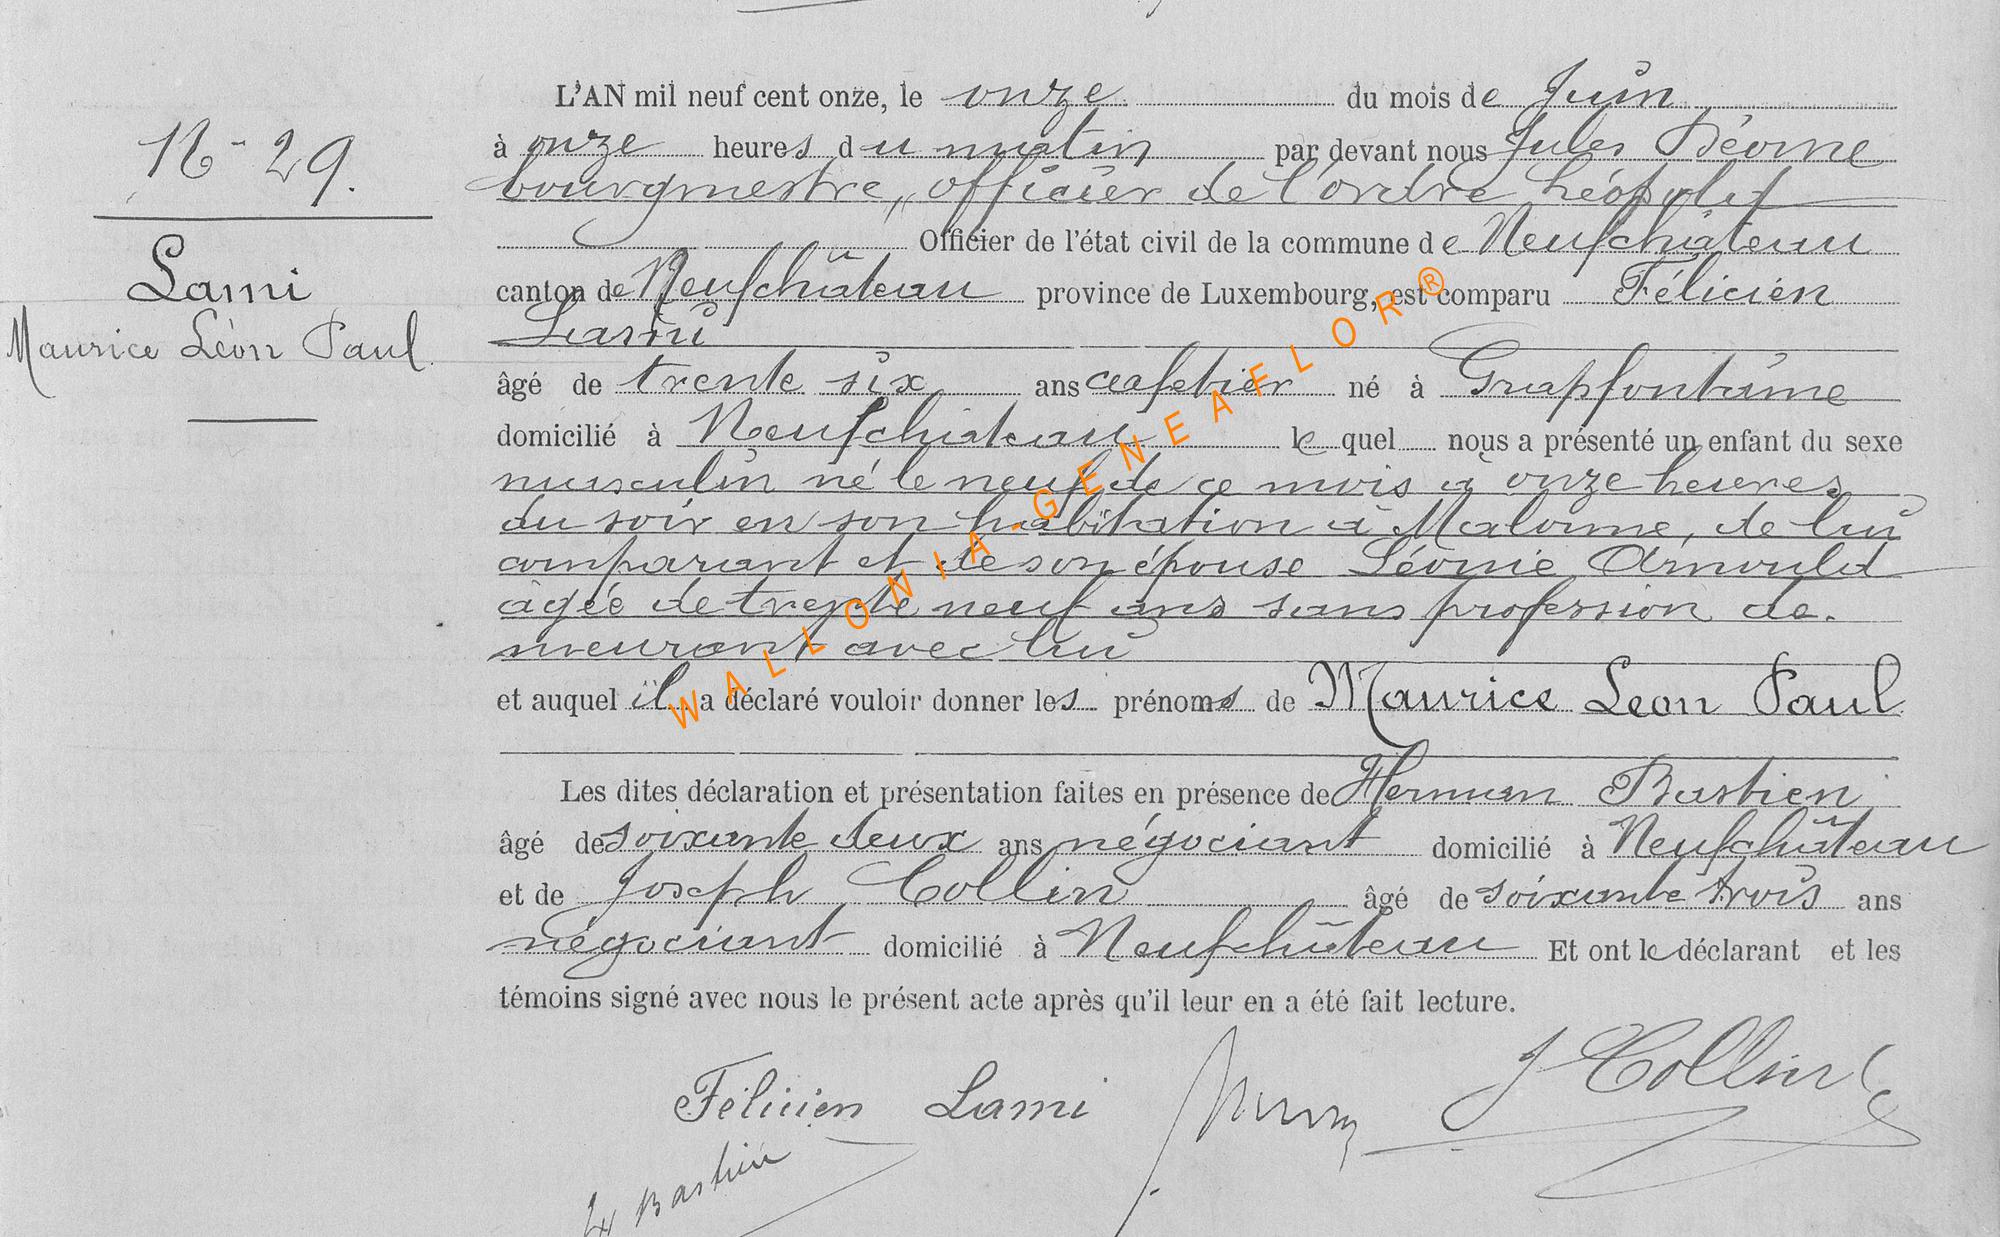 N - 29.
Lami
Maurice Léon Paul.
L'AN mil neuf cent onze, le onze du mois de Juin
à onze heures du matin par devant nous Jules
bourgmestre, officier de l'ordre Léopold
Officier de l'état civil de la commune de Neufchâteau
canton de Neufchâteau province de Luxembourg, est comparu Félicien
Lami
âgé de trente six ans cafetier né à Grapfontaine
domicilié à Neufchateau le quel nous a présenté un enfant du sexe
masculin né le neuf de ce mois à onze heures
du soir en son habitation à Malome, de lui
comparant et de son épouse Léonie Arnould
âgée de trente neuf ans sans profession de-
meurant avec lui
et auquel il a déclaré vouloir donner les prénoms de Maurice Leon Paul
Les dites déclaration et présentation faites en présence de Herman Bastien
âgé de soixante deux ans négociant domicilié à Neufchâteau
et de Joseph Collin âgé de soixante trois ans
négociant domicilié à Neufchâteau Et ont le déclarant et les
témoins signé avec nous le présent acte après qu'il leur en a été fait lecture.
Félicien Lami J Collin
Bastien
WALLONIA-GENEAFLOR®